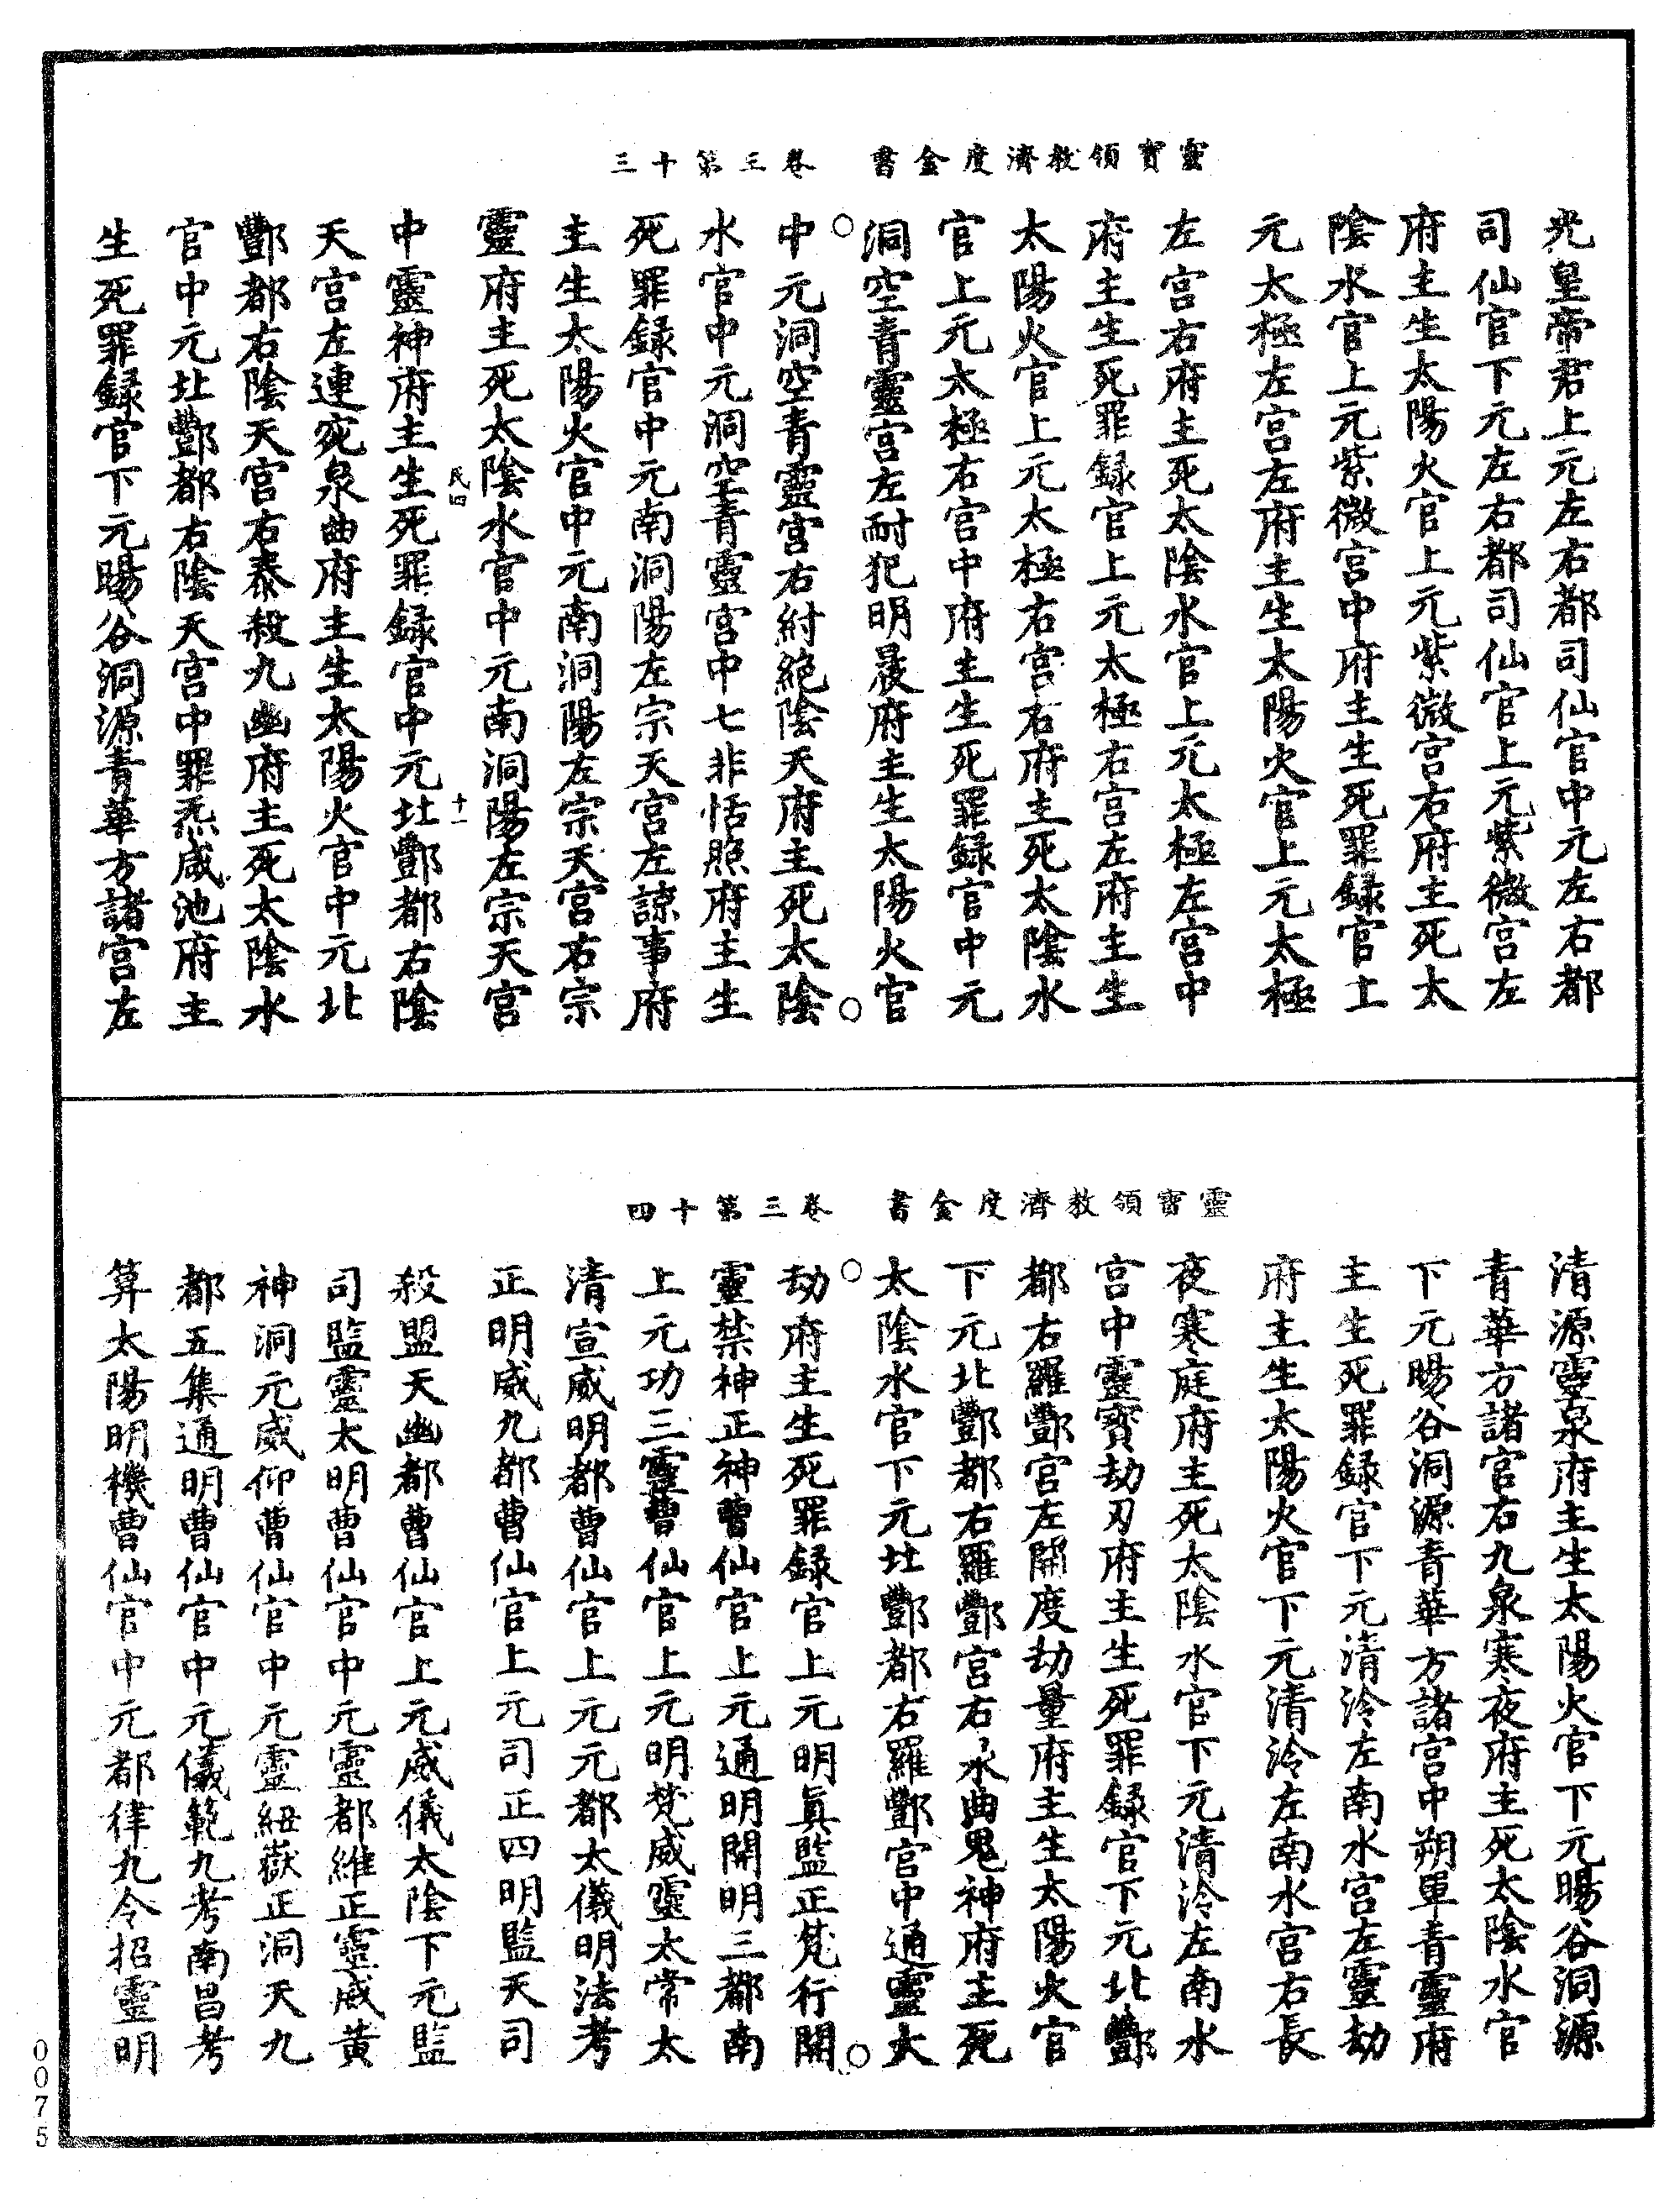 靈寶領教濟度金書　卷三第十三
光皇帝君上元左右都司仙官中元左右都
司仙官下元左右都司仙官上元紫微宮左
府主生太陽火官上元紫微宮右府主死太
陰水官上元紫微宮中府主生死罪録官上
元太極左宮左府主生太陽火官上元太極
左宮右府主死太陰水官上元太極左宮中
府主生死罪録官上元太極右宮左府主生
太陽火官上元太極右宮右府主死太陰水
官上元太極右宮中府主生死罪録官中元
洞空青靈宮左耐犯明晨府主生太陽火官
中元洞空青靈宮右紂絕陰天府主死太陰
水官中元洞空青靈宮中七非恬照府主生
死罪録官中元南洞陽左宗天宮左諒事府
主生太陽火官中元南洞陽左宗天宮右宗
靈府主死太陰水官中元南洞陽左宗天宮
民四　十一
中靈神府主生死罪録官中元北酆都右陰
天宮左連宛泉曲府主生太陽火官中元北
酆都右陰天宮右泰殺九幽府主死太陰水
官中元北酆都右陰天宮中罪炁咸池府主
生死罪録官下元暘谷洞源青華方諸宮左
靈寶領教濟度金書　卷三第十四
清源靈泉府主生太陽火官下元暘谷洞源
青華方諸宮右九泉寒夜府主死太陰水官
下元暘谷洞源青華方諸宮中朔單青靈府
主生死罪録官下元清泠左南水宮左靈劫
府主生太陽火官下元清泠左南水宮右長
夜寒庭府主死太陰水官下元清泠左南水
宮中靈寶劫刃府主生死罪録官下元北酆
都右羅酆宮左開度劫量府主生太陽火官
下元北酆都右羅酆宮右水曲鬼神府主死
太陰水官下元北酆都右羅酆宮中通靈大
劫府主生死罪録官上元明眞監正梵行開
靈禁神正神曹仙官上元通明開明三都南
上元功三靈曹仙官上元明梵威靈太常太
清宣威明都曹仙官上元元都太儀明法考
正明威九都曹仙官上元司正四明監天司
殺盟天幽都曹仙官上元威儀太陰下元監
司監靈太明曹仙官中元靈都維正靈威黃
神洞元威仰曹仙官中元靈紐嶽正洞天九
都五集通明曹仙官中元儀範九考南昌考
算太陽明機曹仙官中元都律九令招靈明
0075